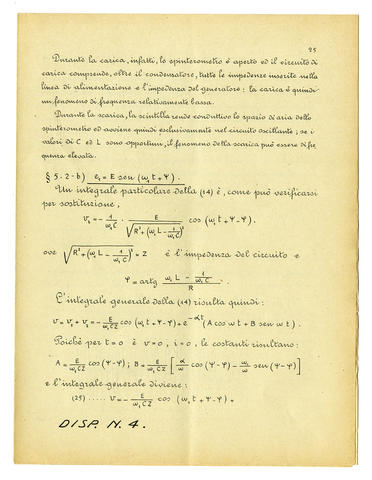 25
Durante la carica, infatti, lo spinterometro è aperto ed il circuito di
carica comprende, oltre il condensatore, tutte le impedenze inserite nella
linea di alimentazione e l'impedenza del generatore: la carica è quindi
un fenomeno di frequenza relativamente bassa.
Durante la scarica, la scintilla rende conduttivo lo spazio di aria dello
spinterometro ed avviene quindi esclusivamente nel circuito oscillante; se i
valori di C ed L sono opportuni, il fenomeno della scarica può essere di fre
quenza elevata.
§ 5-2-b) e₁ = E sen (ω₁ t + Ψ).
Un integrale particolare della (14) è, come può verificarsi
per sostituzione,
v₁ = - 1/(ω₁C) · E/√(R² + (ω₁L - 1/(ω₁C))²) cos (ω₁ t + Ψ - φ).
ove √(R² + (ω₁L - 1/(ω₁C))²) = Z è l'impedenza del circuito e
φ = artg (ω₁L - 1/(ω₁C))/R.
L'integrale generale della (14) risulta quindi:
v = v₁ + v₂ = - E/(ω₁CZ) cos (ω₁ t + Ψ - φ) + e^(-αt) (A cos ω t + B sen ω t).
Poichè per t = 0 è v = 0, i = 0, le costanti risultano:
A = E/(ω₁CZ) cos (Ψ - φ); B = E/(ω₁CZ) [α/ω cos (Ψ - φ) - ω₁/ω sen (Ψ - φ)]
e l'integrale generale diviene:
(25) ..... v = - E/(ω₁CZ) cos (ω₁ t + Ψ - φ) +
DISP. N. 4.